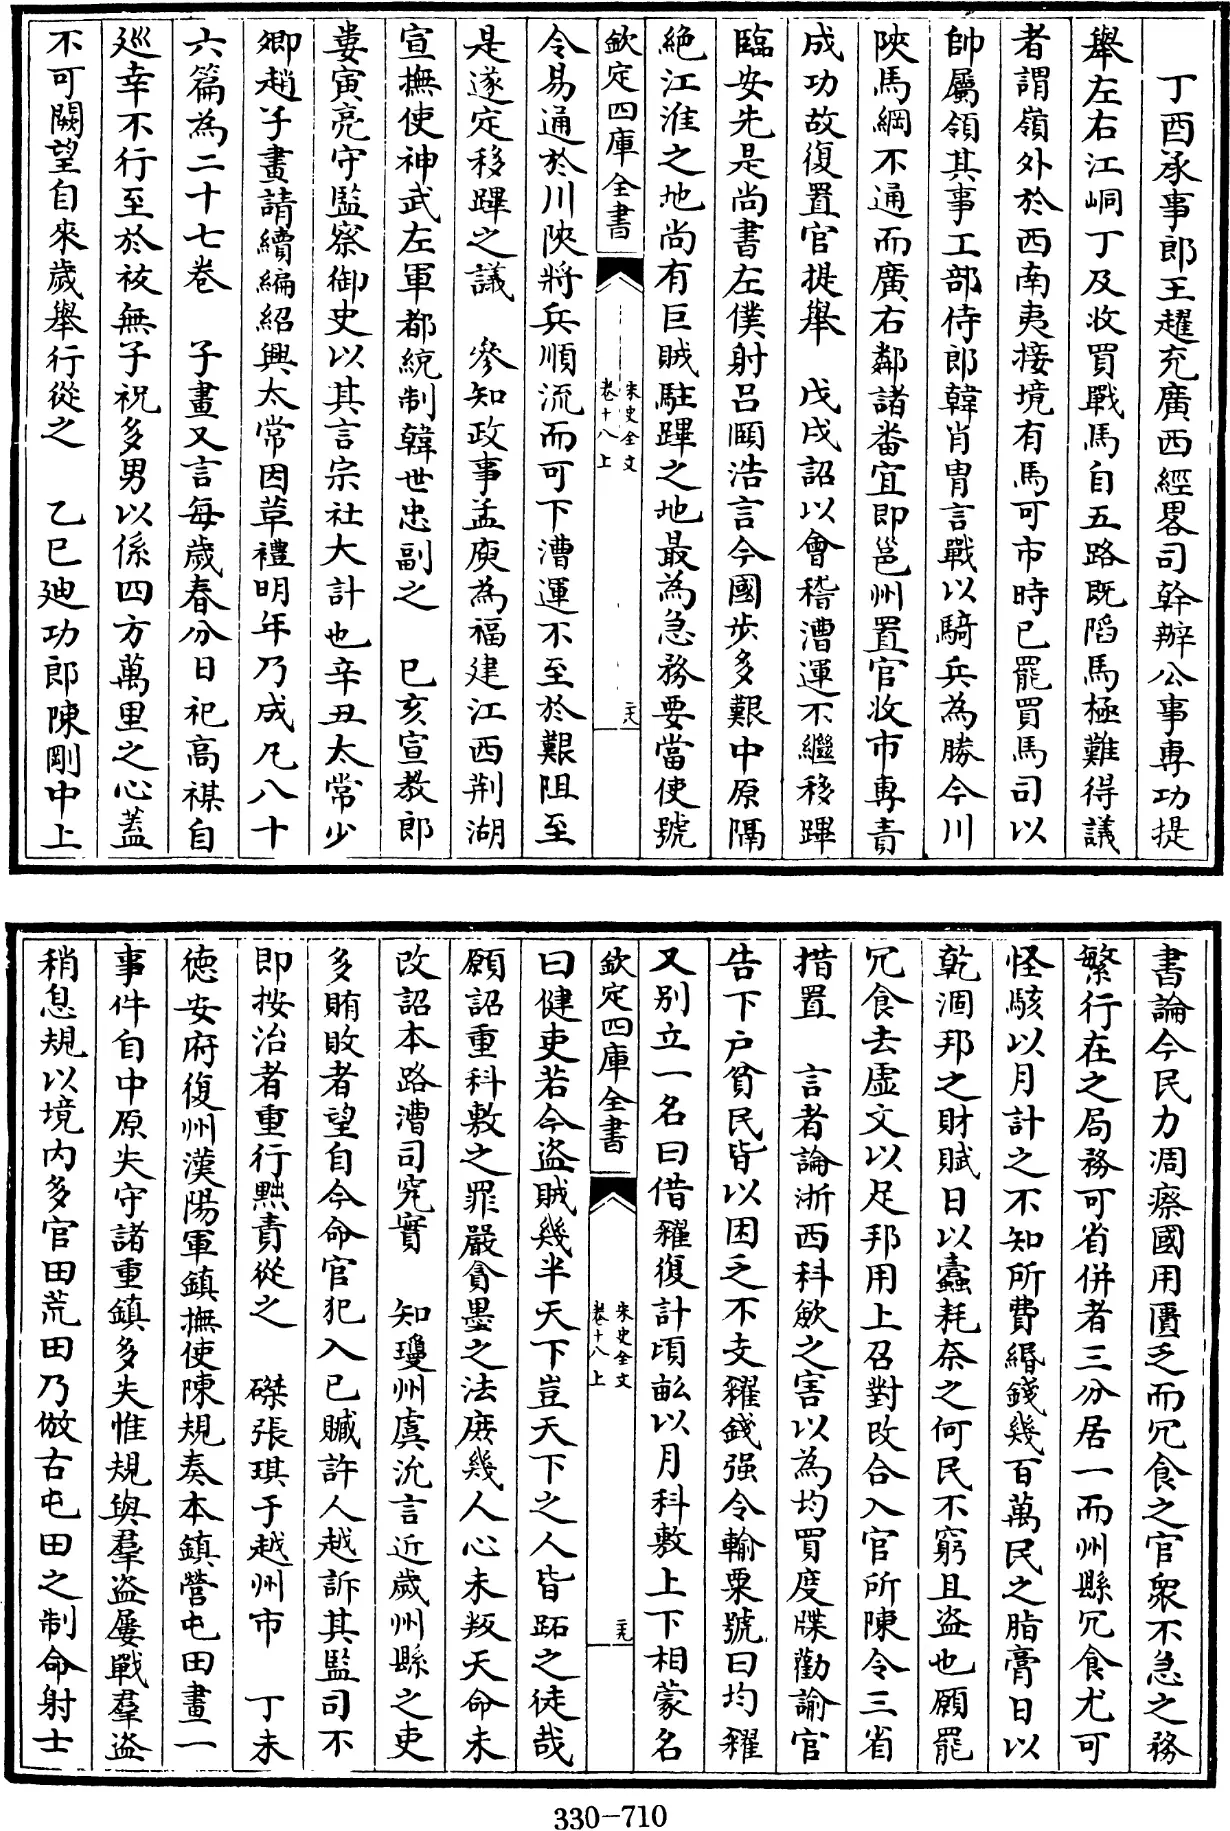 丁酉承事郎王趯充廣西經畧司幹辦公事専功提
舉左右江峒丁及收買戰馬自五路既陷馬極難得議
者謂嶺外於西南夷接境有馬可市時已罷買馬司以
帥屬領其事工部侍郎韓肖胄言戰以騎兵為勝今川
陜馬綱不通而廣右鄰諸畨宜即邕州置官收市専責
成功故復置官提舉　戊戌詔以會稽漕運不繼移蹕
臨安先是尚書左僕射吕頤浩言今國步多艱中原隔
絶江淮之地尚有巨賊駐蹕之地最為急務要當使號
欽定四庫全書
宋史全文
卷十八上
二八
令易通於川陜將兵順流而可下漕運不至於艱阻至
是遂定移蹕之議　參知政事孟庾為福建江西荆湖
宣撫使神武左軍都統制韓世忠副之　已亥宣教郎
婁寅亮守監察御史以其言宗社大計也辛丑太常少
卿趙子畫請續編紹興太常因草禮明年乃成凡八十
六篇為二十七卷　子畫又言每歲春分日祀高禖自
廵幸不行至於祓無子祝多男以係四方萬里之心葢
不可闕望自來歲舉行從之　乙巳廸功郎陳剛中上
書論今民力凋瘵國用匱乏而冗食之官衆不急之務
繁行在之局務可省併者三分居一而州縣冗食尤可
怪駭以月計之不知所費緡錢幾百萬民之脂膏日以
乾涸邦之財賦日以蠧耗奈之何民不窮且盗也願罷
冗食去虚文以足邦用上召對改合入官所陳令三省
措置　言者論浙西科歛之害以為均買度牒勸諭官
告下户貧民皆以困乏不支糴錢强令輸粟號曰均糴
又别立一名曰借糴復計頃畝以月科敷上下相蒙名
欽定四庫全書
宋史全文
卷十八上
二九
曰健吏若今盗賊幾半天下豈天下之人皆跖之徒哉
願詔重科敷之罪嚴貪墨之法庻幾人心未叛天命未
改詔本路漕司究實　知瓊州虞沇言近歲州縣之吏
多賄敗者望自今命官犯入已贓許人越訴其監司不
即按治者重行黜責從之　磔張琪于越州市　丁未
徳安府復州漢陽軍鎮撫使陳規奏本鎮營屯田畫一
事件自中原失守諸重鎮多失惟規與羣盗屢戰羣盗
稍息規以境内多官田荒田乃倣古屯田之制命射士
330-710